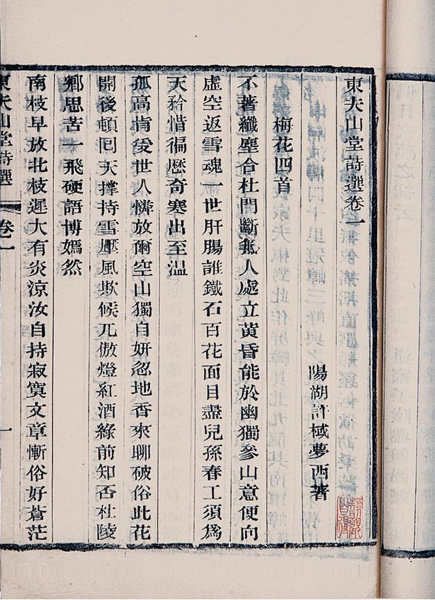 東夫山堂詩選卷一
陽湖許棫夢西著
梅花四首
不著纖塵合杜門斷無人處立黃昏能於幽獨參山意便向
虛空返雪魂一世肝腸誰鐵石百花面目盡兒孫春工須爲
天矜惜徧歷奇寒出至溫
孤高背後世人憐放爾空山獨自妍忽地香來聊破俗此花
開後頓囘天撐持雪壓風欺候兀傲燈紅酒綠前知否杜陵
鄉思苦一飛硬語博嫣然
南枝早放北枝遲大有炎涼汝自持寂寞文章慚俗好蒼茫
東夫山堂詩選 卷一 一